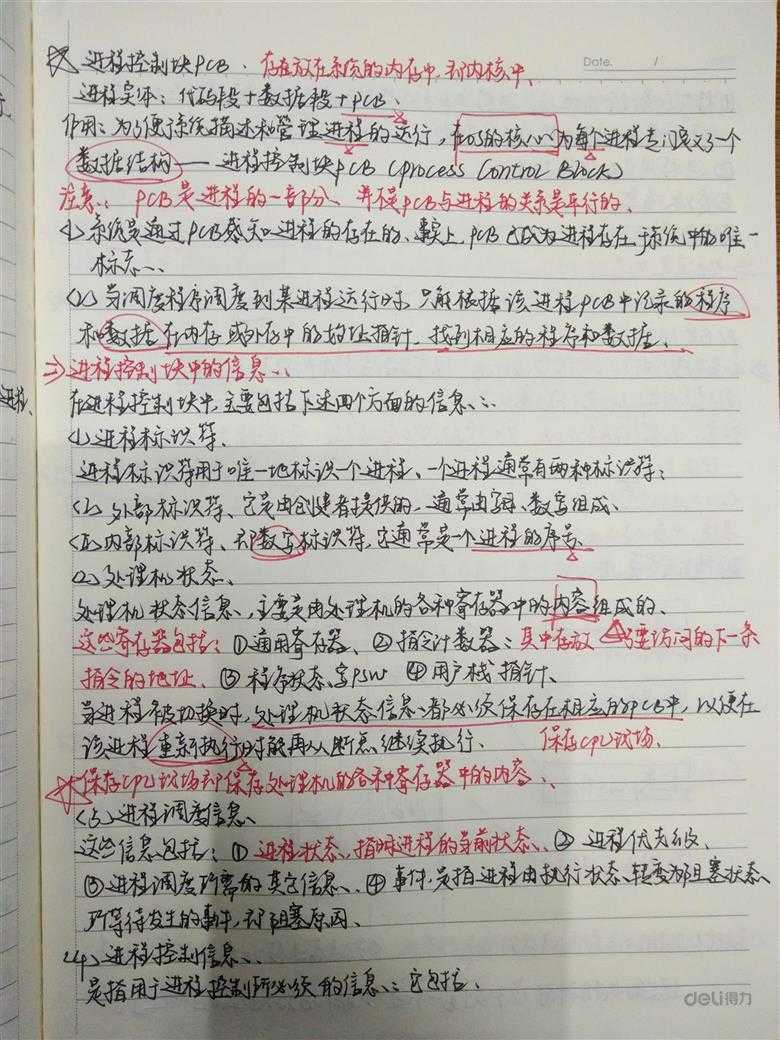 Date. /
进程控制块PCB. 存在放在系统的内存中,即内核中.
进程实体:代码段+数据段+PCB.
作用:为了便系统描述和管理进程的运行,在OS的核心为每个进程专门定义了一个
数据结构——进程控制块PCB (process Control Block)
注意:PCB是进程的一部分、并不是PCB与进程的关系是平行的.
<1>系统是通过PCB感知进程的存在的、事实上PCB已成为进程存在于系统中的唯一
标志.
<2>当调度程序调度到某进程运行时.只能根据该进程PCB中记录的程序
和数据在内存或外存中的地址指针.找到相应的程序和数据.
二>进程控制块中的信息.
在进程控制块中,主要包括下述四个方面的信息:
<1>进程标识符.
进程标识符用于唯一地标识一个进程、一个进程通常有两种标识符:
<I>外部标识符、它是由创建者提供的.通常由字母、数字组成.
<II>内部标识符、即数字标识符,它通常是一个进程的序号.
(2)处理机状态.
处理机状态信息、主要是由处理机的各种寄存器中的内容组成的.
这些寄存器包括:①通用寄存器、②指令计数器:其中存放 要访问的下一条
指令的地址.③程序状态字PSW ④用户栈指针.
当进程被切换时,处理机状态信息都必须保存在相应的PCB中,以便在
该进程重新执行时能再从断点继续执行. 保存CPU现场.
保存CPU现场即保存处理机的各种寄存器中的内容.
(3)进程调度信息.
这些信息包括:①进程状态,指明进程的当前状态、②进程优先级.
③进程调度所需的其它信息、④事件,是指进程由执行状态转变为阻塞状态、
所等待发生的事件,即阻塞原因.
(4)进程控制信息.
是指用于进程控制所必须的信息:它包括.
进程.
deli得力